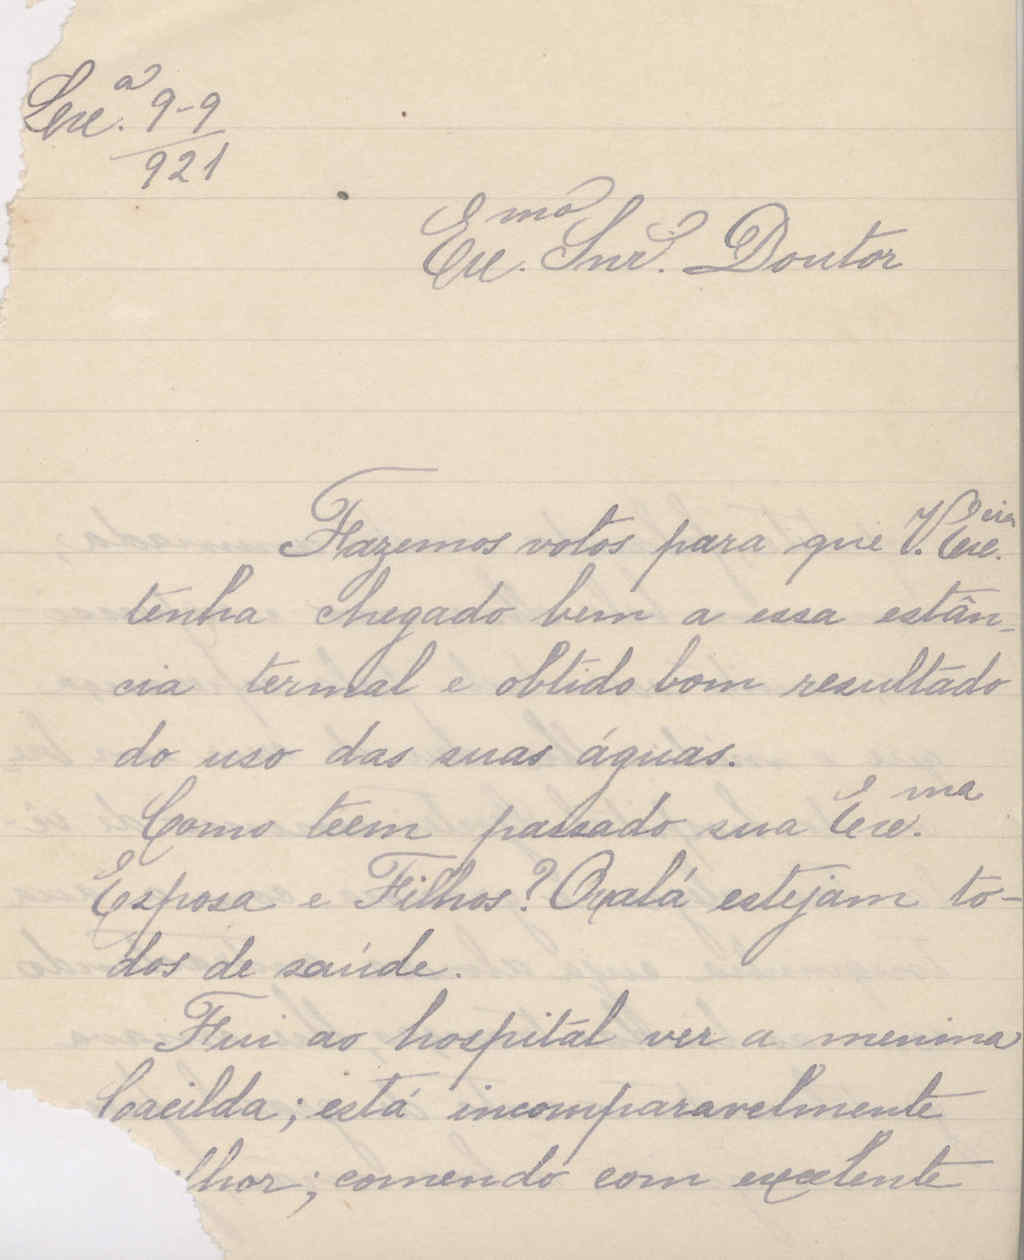 Lxª. 9-9
921
Exmo. Snr. Doutor
Fazemos votos para que V. Excia.
tenha chegado bem a essa estân-
cia termal e obtido bom resultado
do uso das suas águas.
Como teem passado sua Exma.
Esposa e Filhos? Oxalá estejam to-
dos de saúde.
Fui ao hospital ver a menina
Cacilda; está incomparavelmente
lhor; comendo com excelente